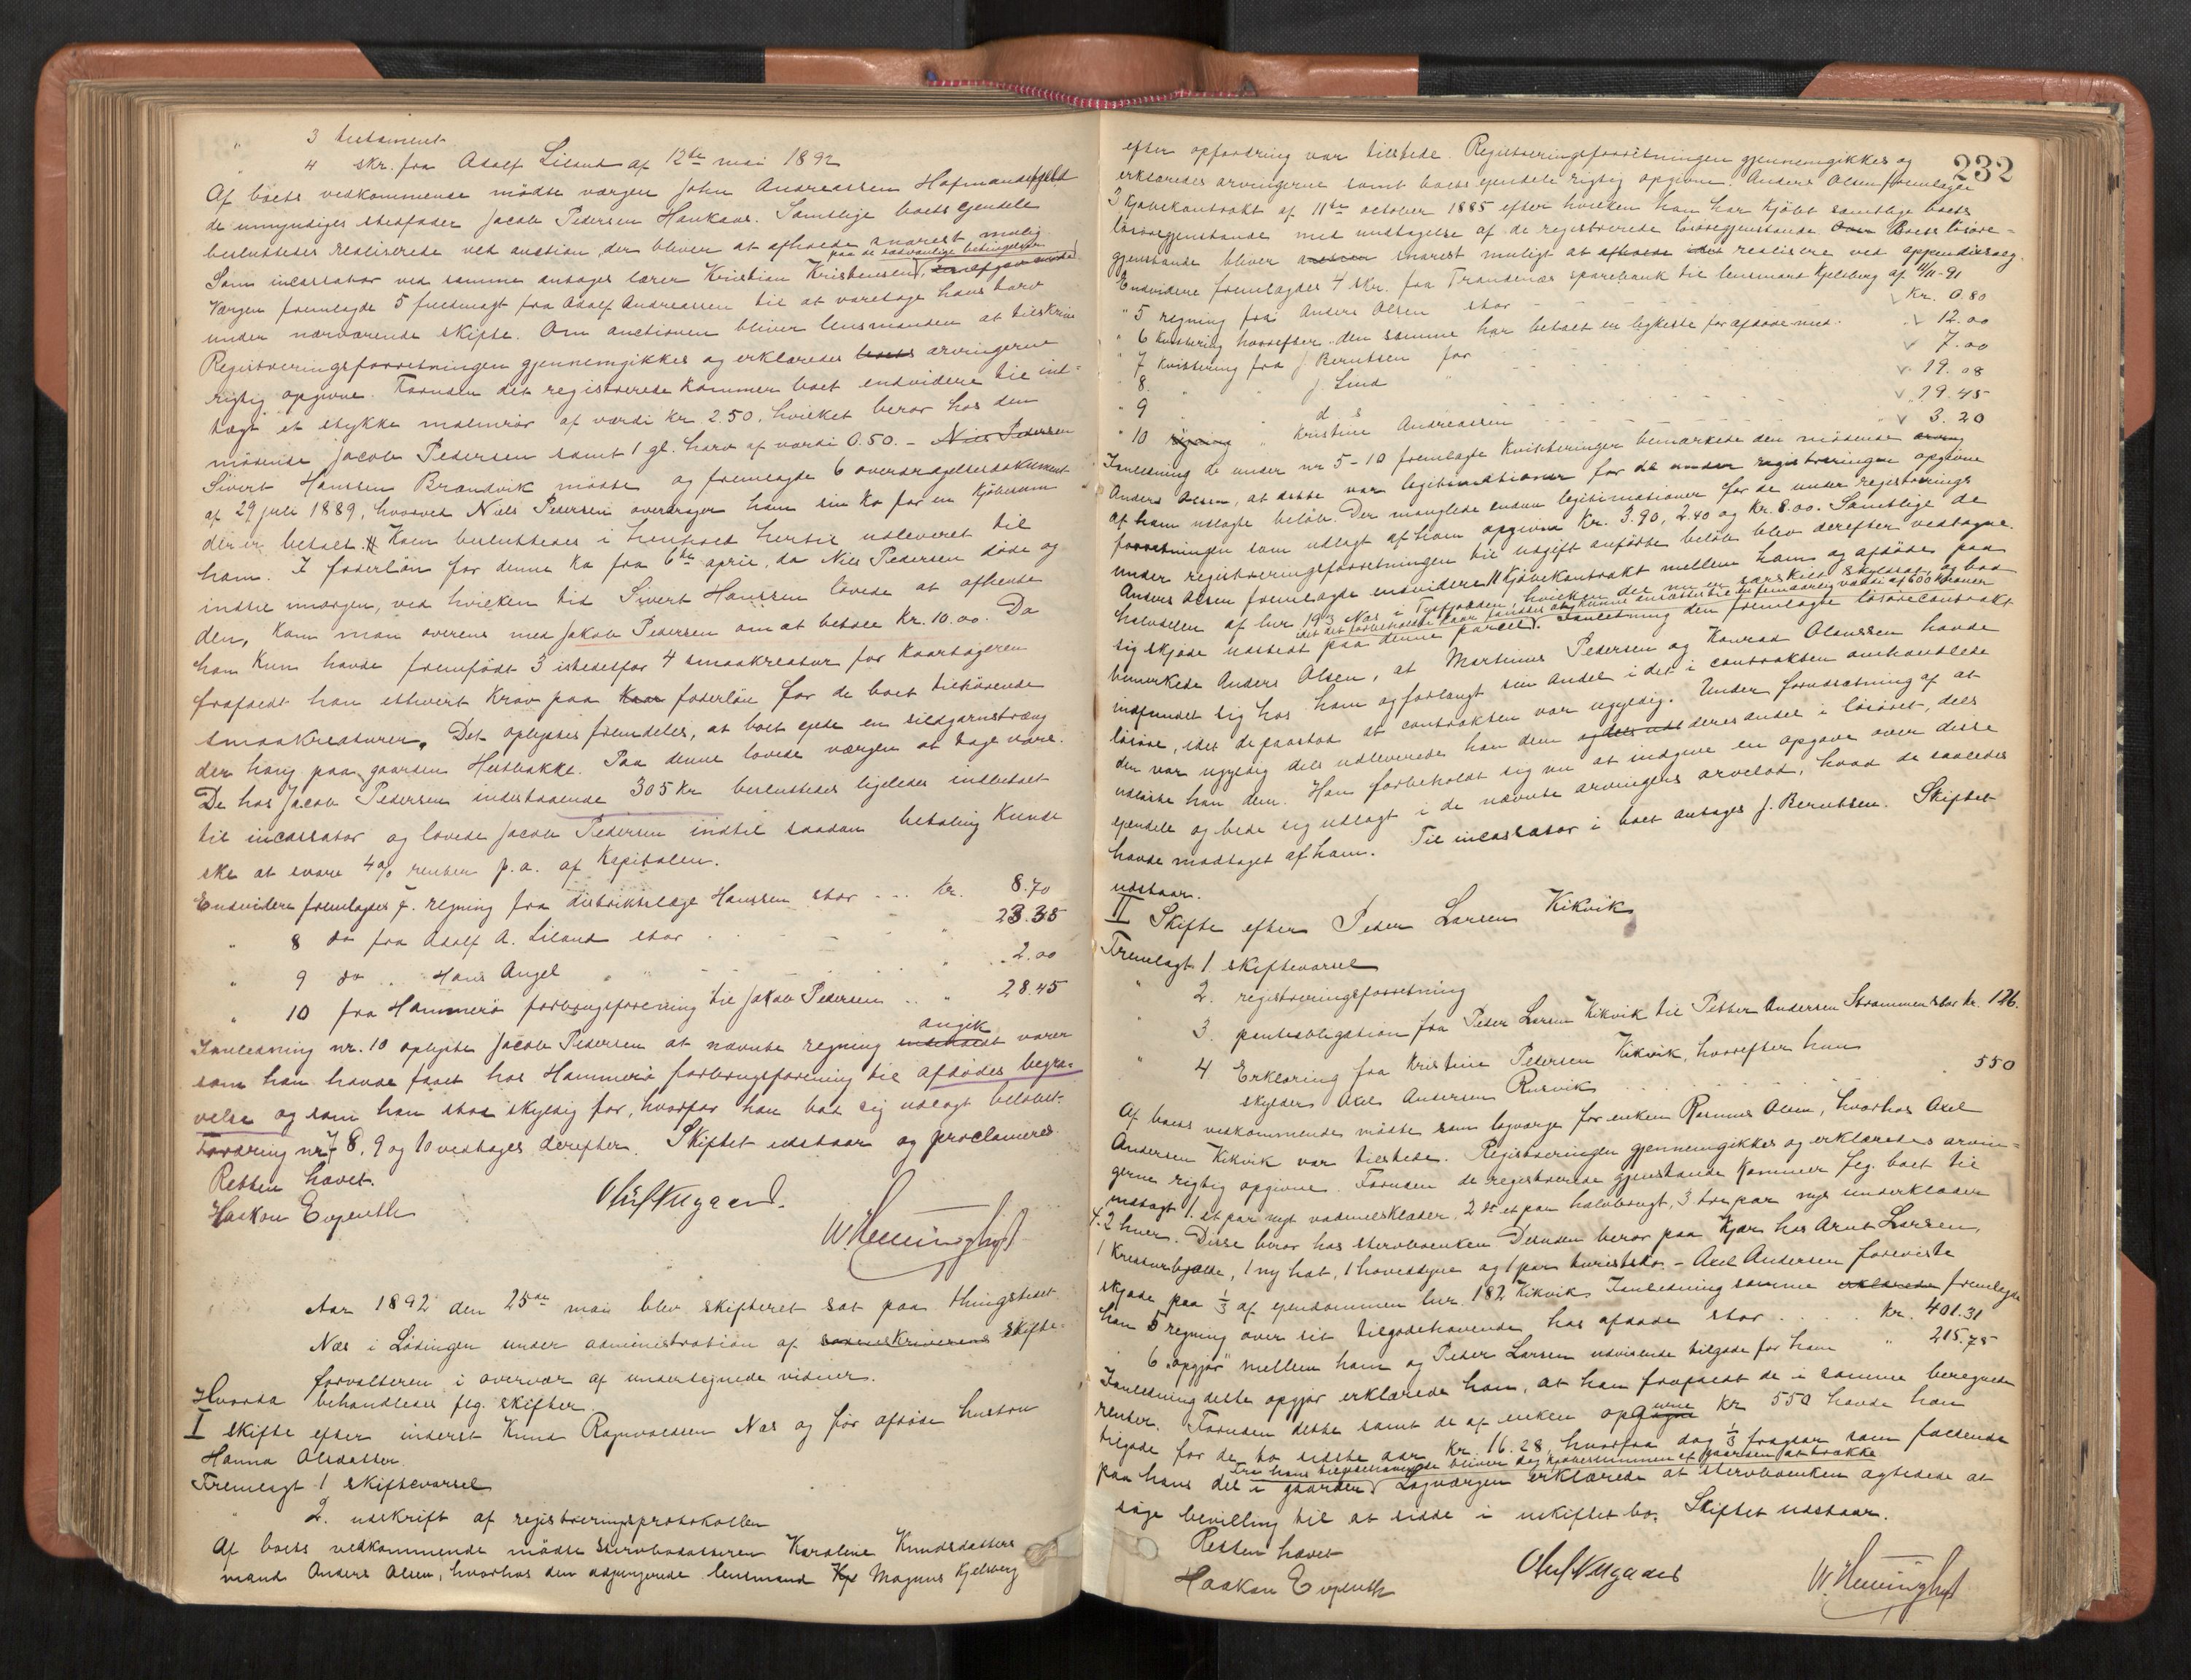 " 3 testament
" 4 skr. fra Adolf Liland af 12te mai 1892
Af boets vedkommende mødte værgen John Andreassen Hofmandsfjeld
de umyndiges stedfader Jacob Pedersen Haukaas. Samtlige boets ejendele
besluttedes realiserede ved auction, der bliver at afholde snarest mulig
paa de sædvanlige betingelser
Som incassator ved samme antages lærer Kristian Kristensen,
Værgen fremlagde 5 fuldmagt fra Adolf Andreassen til at varetage hans tarv
under nærværende skifte. Om auctionen bliver lensmanden at tilskrive
Registreringsforretningen gjennemgikkes og erklæredes boets arvingerne
rigtig opgivne. Foruden det registrerede kommer boet endvidere til ind-
tægt et stykke malmrør af værdi kr. 2.50, hvilket beror hos den
mødende Jacob Pedersen samt 1 gl. harv af værdi 0.50. - Niels Pedersen
Sivert Hansen Brandvik mødte og fremlagde 6 overdragelsesdokument
af 29 juli 1889, hvorved Niels Pedersen overdrager ham sin ko for en kjøbesum
der er betalt. Koen besluttedes i henhold hertil udleveret til
ham. I foderløn for denne ko fra 6te april, da Niels Pedersen døde og
indtil imorgen, ved hvilken tid Sivert Hanssen lovede at afhente
den, kom man overens med Jakob Pedersen om at betale kr. 10.00. Da
han kun havde fremfødt 3 istedetfor 4 smaakreatur for kaartageren
frafaldt han ethvert krav paa foderløn for de boet tilhørende
smaakreaturer. Det oplystes fremdeles, at boet ejede en sildgarnstræng
der hang paa gaarden Hestbakke. Paa denne lovede værgen at tage vare.
De hos Jacob Pedersen indestaaende 305 kr besluttedes ligeledes indbetalt
til incassator og lovede Jacob Pedersen indtil saadan betaling kunde
ske at svare 4% renter p.a. af kapitalen.
Endvidere fremlagdes 7. regning fra distriktslæge Hanssen stor ... kr. 8.70
" 8 do fra Adolf A. Liland stor " 23.35
" 9 do .. Hans Angel " " 2.00
" 10 fra Hammerø forbrugsforening til Jakob Pedersen .. " 28.45
angik
Ianledning nr. 10 oplyste Jacob Pedersen at nævnte regning indeholdt varer
som han havde faaet hos Hammerø forbrugsforening til afdødes begra-
velse og som han stod skyldig for, hvorfor han bad sig udlagt beløbet.
Fordring nr 7 8, 9 og 10 vedtages derefter. Skiftet udstaar og proclameres.
Retten hævet.
Haakon Evjenth
W. Henninghoft
Aar 1892 den 25de mai blev skifteret sat paa thingstedet
Næs i Lødingen under administration af sorenskriverens skifte-
forvalteren i overvær af undertegnede vidner.
Hvorda behandledes flg. skifter.
I skifte efter inderst Knud Ragnvaldsen Næs og før afdøde hustru
Hanna Olsdatter.
Fremlagt 1 skiftevarsel
" 2. udskrift af registreringsprotokollen
Af boets vedkommende mødte stervbodatteren Karoline Knudsdatters
mand Anders Olsen, hvorhos den adjungerede lensmand Kjel Magnus Kjelsberg
232
efter opfordring var tilstede. Registreringsforretningen gjennemgikkes og
erklæredes arvingerne samt boets ejendele rigtig opgivne. Anders Olsen fremlagde
3 kjøbekontrakt af 11te october 1885 efter hvilken han har kjøbt samtlige boets
løsøregjenstande med undtagelse af de registrerede løsøregjenstande. Boets løsøre-
gjenstande bliver snarest muligt at afholde realisere ved appendixsalg.
Endvidere fremlagdes 4 skr. fra Trondenæs sparebank til lensmand Kjelsberg af 11/11-91
" 5 regning fra Anders Olsen stor kr. 0.80
" 6 kvittering hvorefter den samme har betalt en ligkiste for afdøde med. 12.00
" 7 kvittering fra J. Berntsen for 7.00
" 8 " J. Lind " 19.08
" 9 " d s 29.45
" 10 " Kristine Andreassen 3.20
Ianledning de under nr 5-10 fremlagte kvitteringer bemærkede den mødende arving
Anders Olsen, at dette var legitimationer for de under registreringen opgivne
af ham udlagte beløb. Der manglede endnu legitimationer for de under registrerings
forretningen som udlagt af ham opgivne kr. 3.90, 2.40 og kr. 8.00. Samtlige de
under registreringsforretningen til udgift anførte beløb blev derefter vedtagne.
Anders Olsen fremlagde endvidere 11 kjøbekontrakt mellem ham og afdøde paa
halvdelen af lnr 193 Næs i Tysfjorden, hvilken del nu er særskilt skyldsat, og bad
sig skjøde udstedt paa denne parcel. Ianledning den fremlagte løsørecontrakt
bemerkede Anders Olsen, at Martinus Pedersen og Konrad Olaussen havde
indfundet sig hos ham og forlangt sin andel i det i contrakten omhandlede
løsøre, idet de paastod at contrakten var ugyldig. Under forudsætning af at
den var ugyldig dels udleverede han dem deres andel i løsøret, dels
udløste han dem. Han forbeholdt sig nu at indgive en opgave over disse
ejendele og bede sig udlagt i de nævnte arvingers arvelod, hvad de saaledes
havde modtaget af ham. Til incassator i boet antages J. Berntsen. Skiftet
udstaar.
II Skifte efter Peder Larsen Kikvik
Fremlagt 1 skiftevarsel
" 2. registreringsforretning
" 3. panteobligation fra Peder Larsen Kikvik til Petter Andersen Strømmen stor kr. 126.
" 4 Erklæring fra Kristine Pedersen Kikvik, hvorefter hun
skylder Axel Andersen Rusvik 550
Af boets vedkommende mødte som lagværge for enken Rasmus Olsen, hvorhos Axel
Andersen Kikvik var tilstede. Registreringen gjennemgikkes og erklæredes arvin-
gerne rigtig opgivne. Foruden de registrerede gjenstande kommer flg. boet til
indtægt 1. et par nyt vadmelsklæder, 2 do et par halvbrugt, 3 tre par nye underklæder
4. 2 huer. Disse beror hos stervboenken. Desuden beror paa Kjær hos Arnt Larsen
1 kreaturbjælde, 1 ny hat, 1 hoveddyne og 1 par turistsko. - Axel Andersen foreviste
skjøde paa 1/3 af ejendommen lnr. 182 Kikvik. Ianledning samme erklærede fremlagde
han 5 regning over sit tilgodehavende hos afdøde stor .... kr. 401.31
6 "opgjør" mellem ham og Peder Larsen udvisende tilgode for ham " 215.75
Ianledning dette opgjør erklærede han, at han frafaldt de i samme beregnede
renter. Foruden dette samt de af enken opgivne kr 550 havde han
tilgode for de to sidste aar kr. 16.28, hvorfra dog 1/3 fragaar som faldende
Fra hans tilgodehavende bliver dog kjøbesummen af gaarden at trække
paa hans del i gaarden. Lagværgen erklærede at stervboenken agtede at
søge bevilling til at sidde i uskiftet bo. Skiftet udstaar.
Retten hævet
Haakon Evjenth
W. Henninghoft